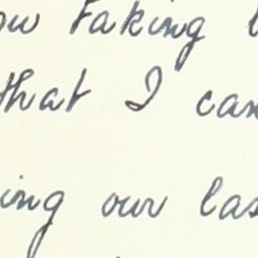 ow taking
that I can
ing our las